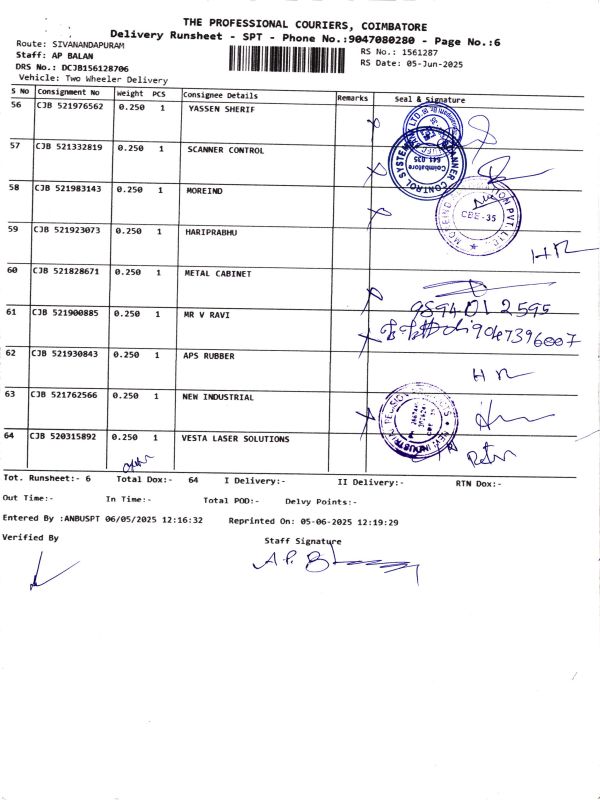 THE PROFESSIONAL COURIERS, COIMBATORE
Delivery Runsheet - SPT - Phone No.:9047080280 - Page No.:6
Route: SIVANANDAPURAM
RS No.: 1561287
Staff: AP BALAN
RS Date: 05-Jun-2025
DRS No.: DCJB156128706
Vehicle: Two Wheeler Delivery
S No Consignment No Weight PCS Consignee Details Remarks Seal & Signature
56 CJB 521976562 0.250 1 YASSEN SHERIF
57 CJB 521332819 0.250 1 SCANNER CONTROL
SCANNER CONTROL SYSTEMS
Coimbatore
641 035
58 CJB 521983143 0.250 1 MOREIND
CBE-35
PVT. LTD.
59 CJB 521923073 0.250 1 HARIPRABHU
HR
60 CJB 521828671 0.250 1 METAL CABINET
61 CJB 521900885 0.250 1 MR V RAVI
9894012595
9047396007
62 CJB 521930843 0.250 1 APS RUBBER
HR
63 CJB 521762566 0.250 1 NEW INDUSTRIAL
NEW INDUSTRIAL
64 CJB 520315892 0.250 1 VESTA LASER SOLUTIONS
Tot. Runsheet:- 6 Total Dox:- 64 I Delivery:- II Delivery:- RTN Dox:-
Out Time:- In Time:- Total POD:- Delvy Points:-
Entered By :ANBUSPT 06/05/2025 12:16:32 Reprinted On: 05-06-2025 12:19:29
Verified By Staff Signature
A.P. B